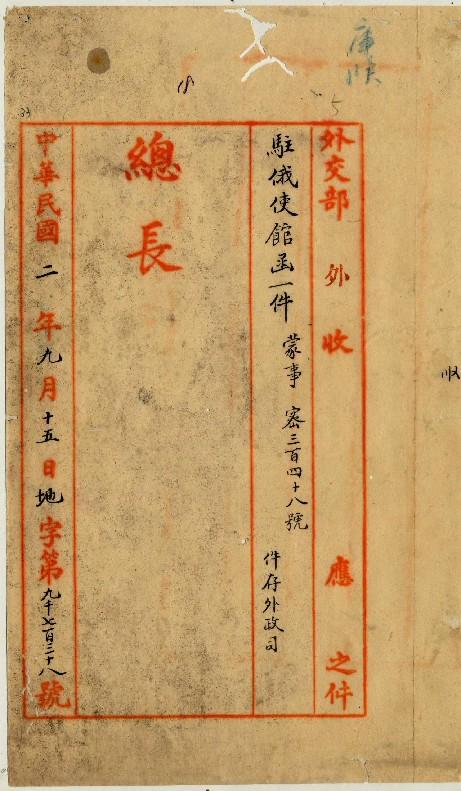 18
5
外交部外收應之件
駐俄使館函一件 蒙事 密三百四十八號
件存外政司
總長
中華民國二年九月十五日地字第九千七百三十八號
收